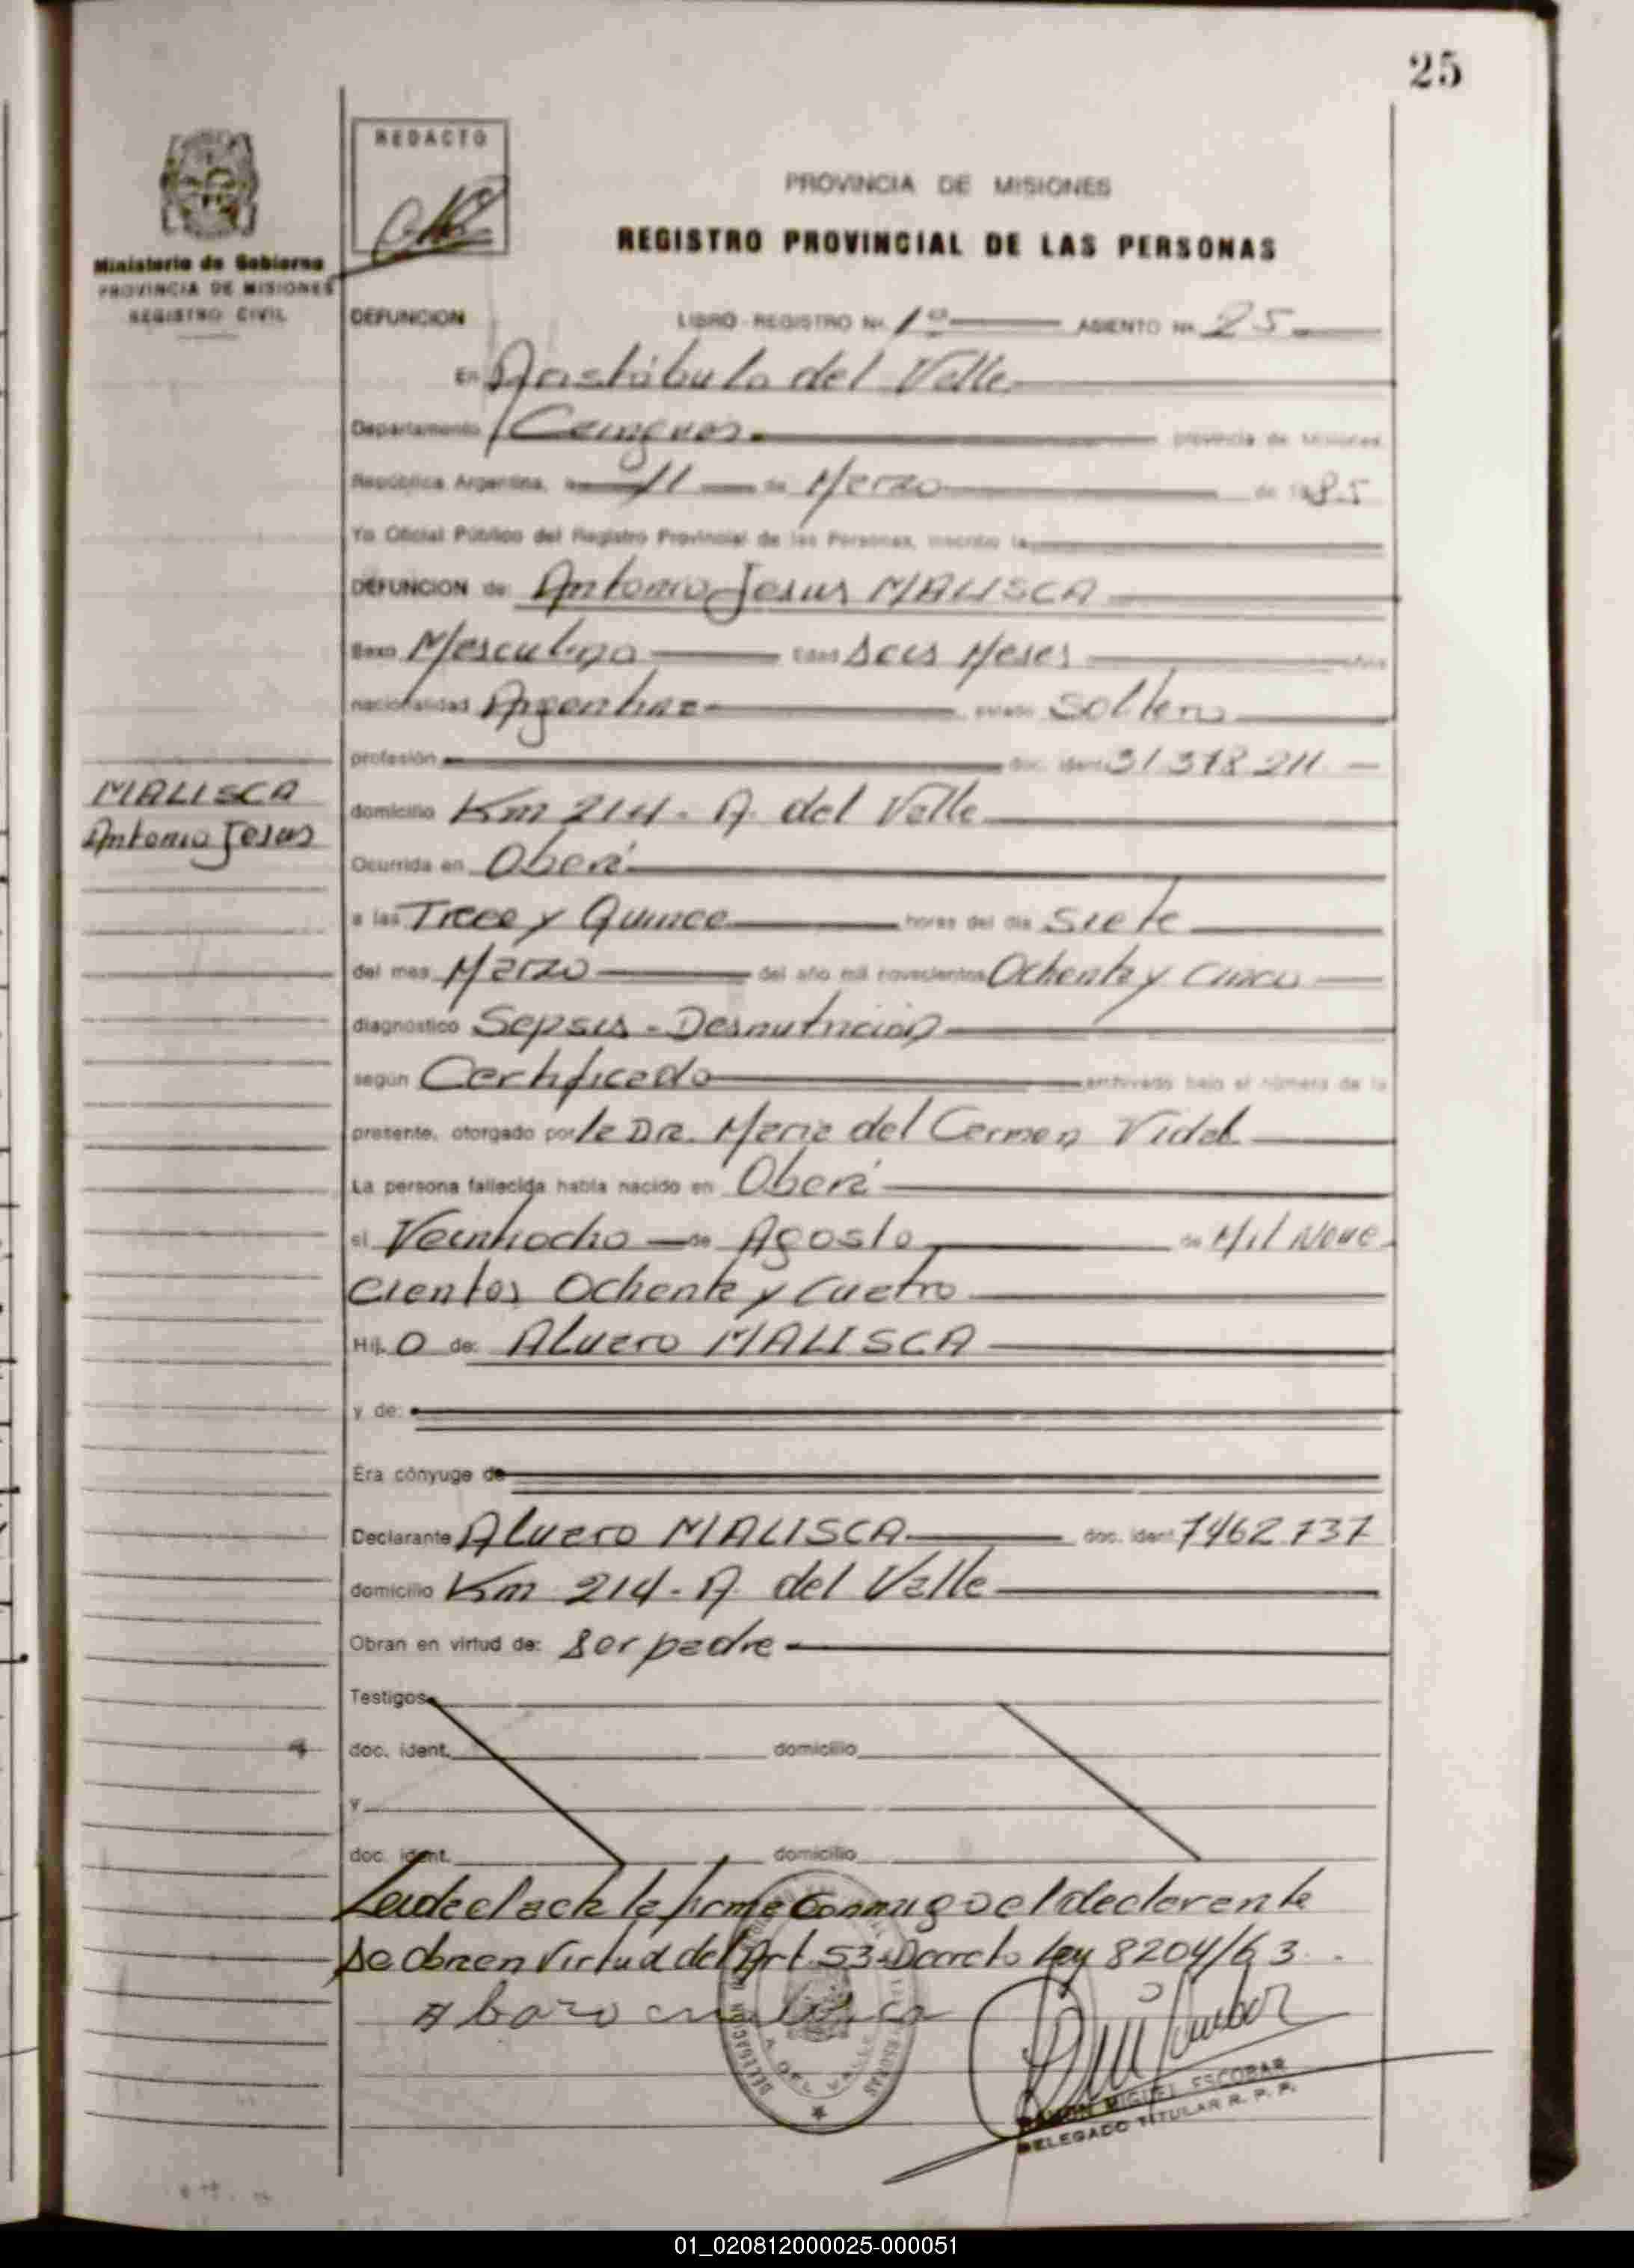 25
REDACTO
PROVINCIA DE MISIONES
REGISTRO PROVINCIAL DE LAS PERSONAS
Ministerio de Gobierno
PROVINCIA DE MISIONES
REGISTRO CIVIL
DEFUNCION LIBRO - REGISTRO Nº 1º ASIENTO Nº 25
En Aristóbulo del Valle
Departamento Cainguas provincia de Misiones
República Argentina, a 11 de Marzo de 1985
Yo Oficial Público del Registro Provincial de las Personas, inscribo la
DEFUNCION de: Antonio Jesus MALISCA
Sexo Masculino Edad Seis Meses años
nacionalidad Argentina estado Soltero
profesión doc. ident. 31 378 211
MALISCA
Antonio Jesus
domicilio Km 214 - A. del Valle
Ocurrida en Oberá
a las Trece y Quince horas del día Siete
del mes Marzo del año mil novecientos Ochenta y Cinco
diagnóstico Sepsis - Desnutrición
según Certificado archivado bajo el número de la
presente, otorgado por la Dra. Maria del Carmen Vidal
La persona fallecida había nacido en Oberá
el Veintiocho de Agosto de Mil Nove
cientos Ochenta y Cuatro
Hij. o de: Alvaro MALISCA
y de:
Era cónyuge de
Declarante Alvaro MALISCA doc. ident. 7462.737
domicilio Km 214 - A. del Valle
Obran en virtud de: ser padre
Testigos
doc. ident. domicilio
y
doc. ident. domicilio
Leida el acta la firma conmigo el declarante
Se obra en Virtud del Art. 53 - Decreto Ley 8204/63.
Albaro malisca
DELEGACION
A. DEL VALLE
RAMON MIGUEL ESCOBAR
DELEGADO TITULAR R. P. P.
01_020812000025-000051